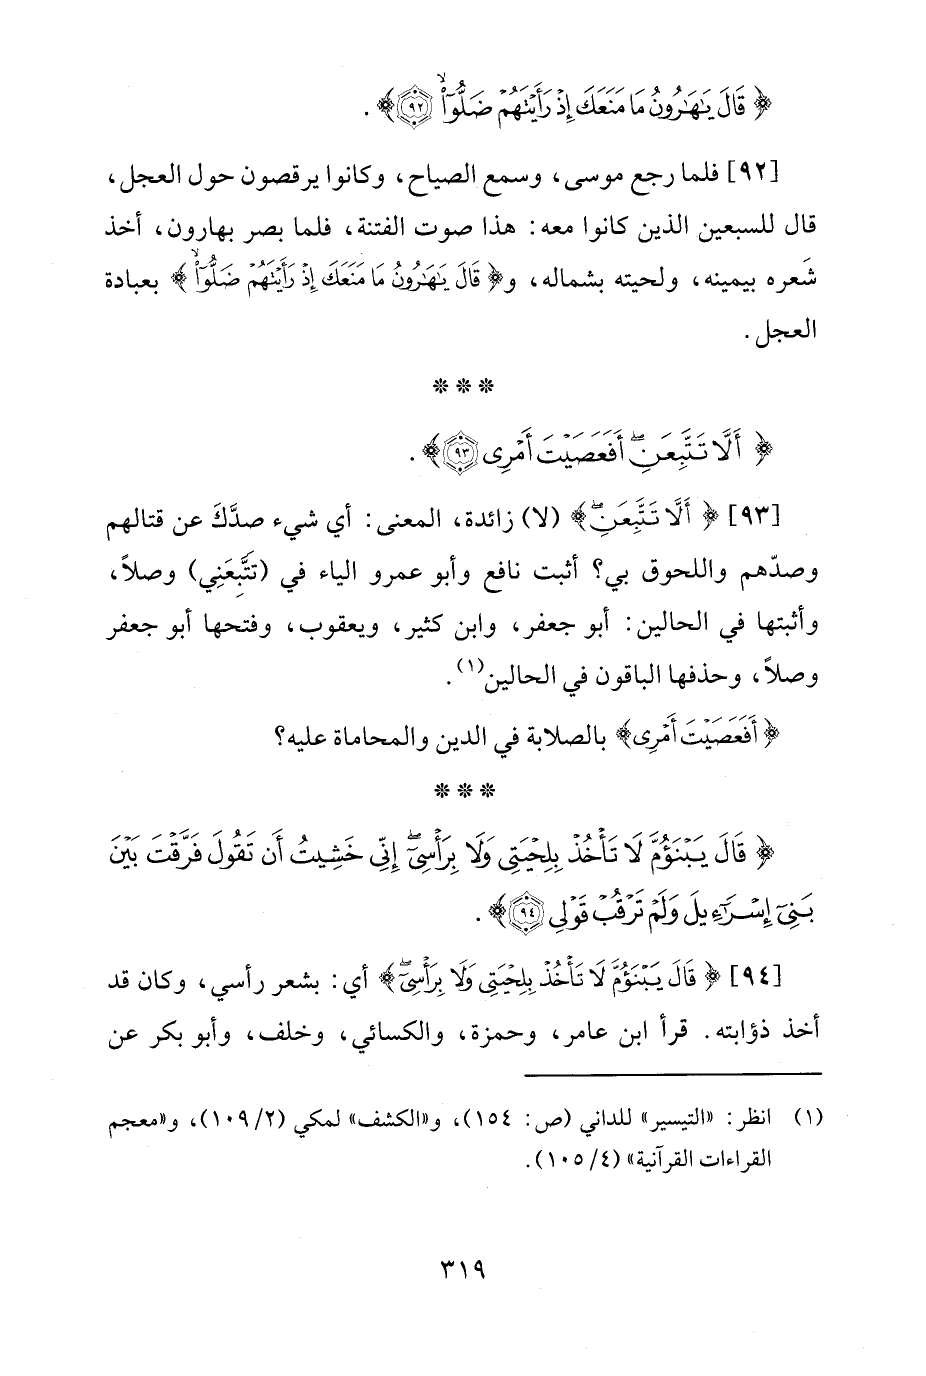 ﴿ قَالَ يَٰهَٰرُونُ مَا مَنَعَكَ إِذْ رَأَيْتَهُمْ ضَلُّوٓا۟ ۙ ﴿٩٢﴾ ﴾ .
[٩٢] فلما رجع موسى، وسمع الصياح، وكانوا يرقصون حول العجل،
قال للسبعين الذين كانوا معه: هذا صوت الفتنة، فلما بصر بهارون، أخذ
شَعره بيمينه، ولحيته بشماله، و﴿ قَالَ يَٰهَٰرُونُ مَا مَنَعَكَ إِذْ رَأَيْتَهُمْ ضَلُّوٓا۟ ۙ ﴾ بعبادة
العجل.
* * *
﴿ أَلَّا تَتَّبِعَنِ ۖ أَفَعَصَيْتَ أَمْرِى ﴿٩٣﴾ ﴾ .
[٩٣] ﴿ أَلَّا تَتَّبِعَنِ ۖ ﴾ (لا) زائدة، المعنى: أي شيء صدَّكَ عن قتالهم
وصدّهم واللحوق بي؟ أثبت نافع وأبو عمرو الياء في (تتَّبِعَنِي) وصلاً،
وأثبتها في الحالين: أبو جعفر، وابن كثير، ويعقوب، وفتحها أبو جعفر
وصلاً، وحذفها الباقون في الحالين(١).
﴿ أَفَعَصَيْتَ أَمْرِى ﴾ بالصلابة في الدين والمحاماة عليه؟
* * *
﴿ قَالَ يَبْنَؤُمَّ لَا تَأْخُذْ بِلِحْيَتِى وَلَا بِرَأْسِىٓ ۖ إِنِّى خَشِيتُ أَن تَقُولَ فَرَّقْتَ بَيْنَ
بَنِىٓ إِسْرَٰٓءِيلَ وَلَمْ تَرْقُبْ قَوْلِى ﴿٩٤﴾ ﴾ .
[٩٤] ﴿ قَالَ يَبْنَؤُمَّ لَا تَأْخُذْ بِلِحْيَتِى وَلَا بِرَأْسِىٓ ۖ ﴾ أي: بشعر رأسي، وكان قد
أخذ ذؤابته. قرأ ابن عامر، وحمزة، والكسائي، وخلف، وأبو بكر عن
(١) انظر: «التيسير» للداني (ص: ١٥٤)، و«الكشف» لمكي (٢/ ١٠٩)، و«معجم
القراءات القرآنية» (٤/ ١٠٥).
٣١٩